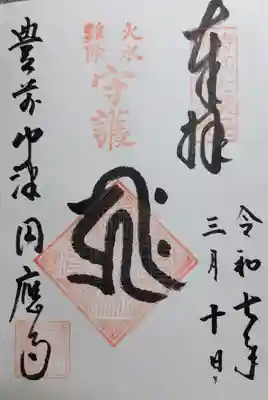 奉拝
令和七年
三月十日
火水
難除
守護
豊前中津円應寺